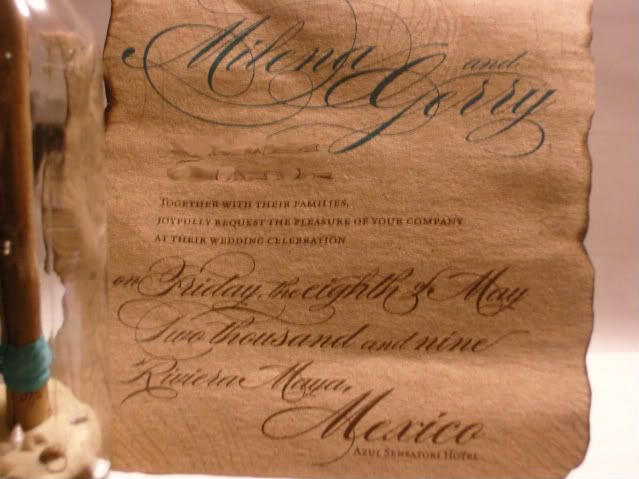 Milena and
Gerry
TOGETHER WITH THEIR FAMILIES,
JOYFULLY REQUEST THE PLEASURE OF YOUR COMPANY
AT THEIR WEDDING CELEBRATION
on Friday, the eighth of May
Two thousand and nine
Riviera Maya,
Mexico
AZUL SENSATORI HOTEL